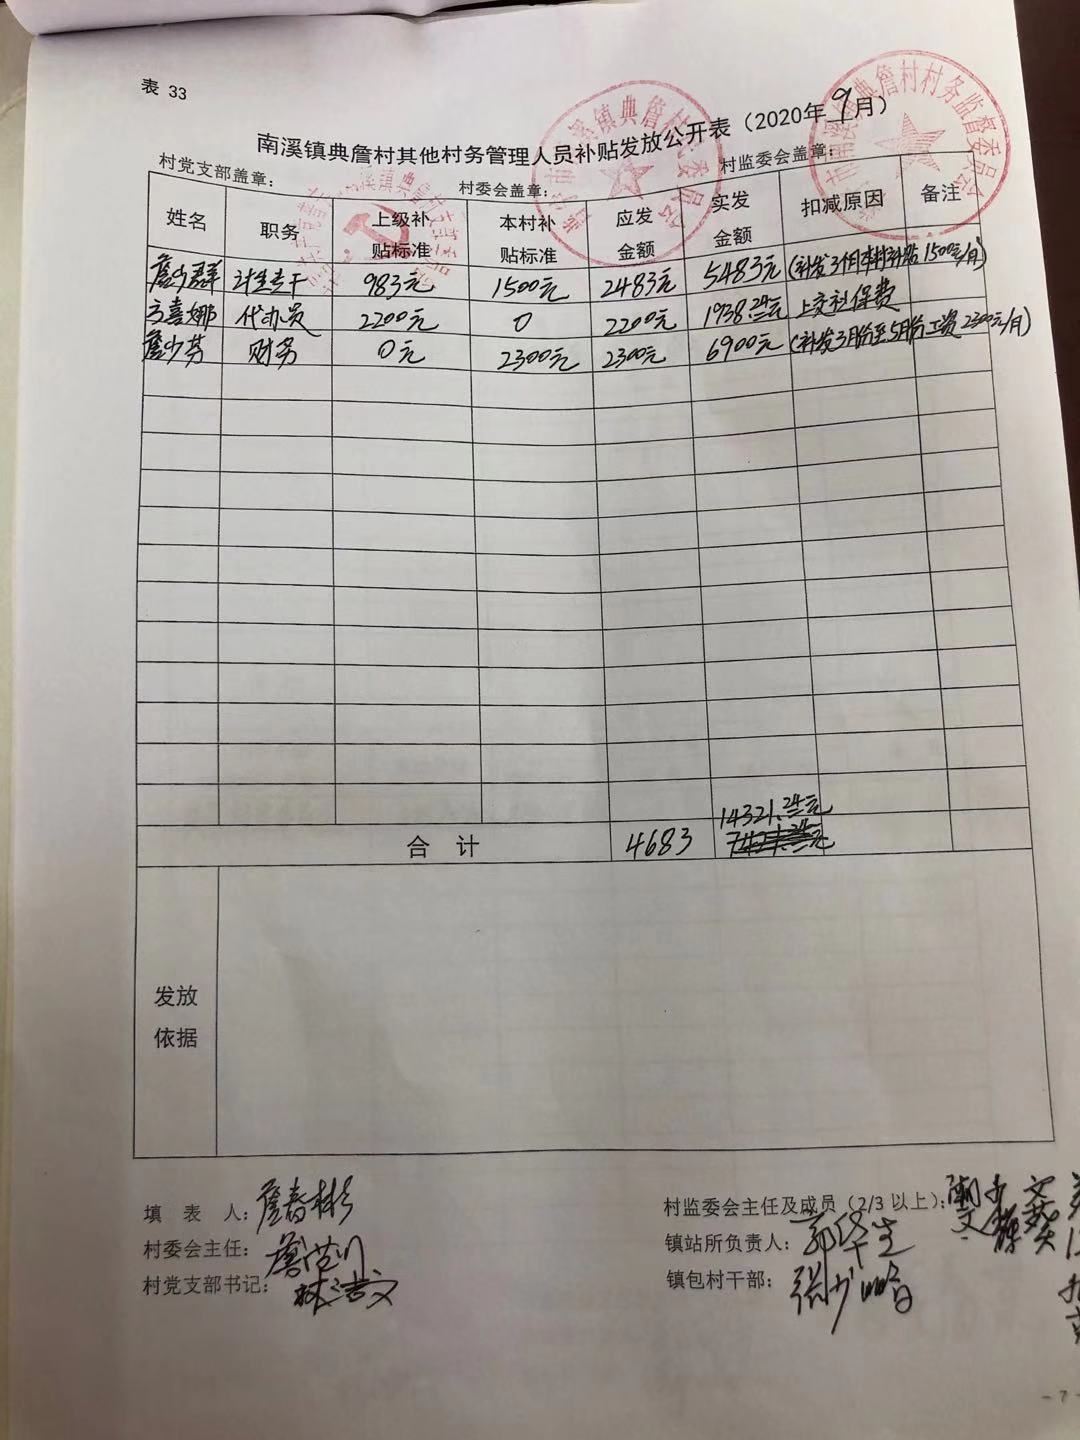 表 33
南溪镇典詹村其他村务管理人员补贴发放公开表（2020年9月）
村党支部盖章： 村委会盖章： 村监委会盖章：
姓名 职务 上级补贴标准 本村补贴标准 应发金额 实发金额 扣减原因 备注
詹少群 计生专干 983元 1500元 2483元 5483元 (补发3个月本村补贴1500元/月)
方喜娜 代办员 2200元 0 2200元 1938.24元 上交社保费
詹少芬 财务 0元 2300元 2300元 6900元 (补发3月份至5月份工资2300元/月)
14321.24元
合 计 4683
发放
依据
填 表 人：詹春彬 村监委会主任及成员（2/3以上）：
村委会主任： 镇站所负责人：
村党支部书记： 镇包村干部：
- 7 -